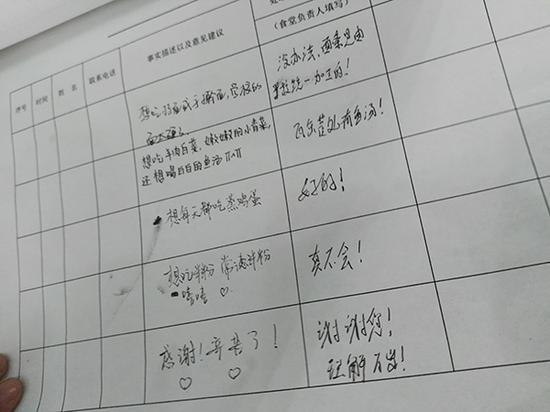 序号 时间 姓 名 联系电话 事实描述以及意见建议
(食堂负责人填写)
想吃 面或手擀面,学校的
面太硬了
没办法,面条是由
学校统一加工的!
想吃羊肉白菜,嫩嫩的小青菜,
还想喝白白的鱼汤 π_π
处有鱼汤!
想每天都吃蒸鸡蛋
好的!
想吃米粉 常德米粉
嘻嘻 ♡
真不会!
感谢!辛苦了!
♡ ♡
谢谢您!
理解万岁!